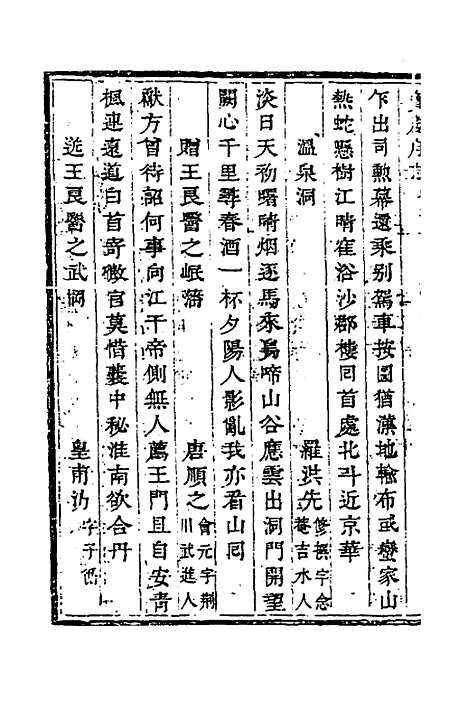 乍出司勲幕還乘别駕車按圖猶漢地輸布或蠻家山
熱蛇懸樹江晴雀浴沙郡樓囘首處北斗近京華
温泉洞 羅洪先 修撰字念菴吉水人
淡日天初曙晴烟逐馬來鳥啼山谷應雲出洞門開望
闕心千里尋春酒一杯夕陽人影亂我亦看山囘
贈王良醫之岷藩 唐順之 會元字荆川武進人
獻方曾待詔何事向江干帝側無人薦王門且自安青
楓連遠道白首寄微官莫惜囊中秘淮南欲合丹
送王良醫之武岡 皇甫汸 字子循